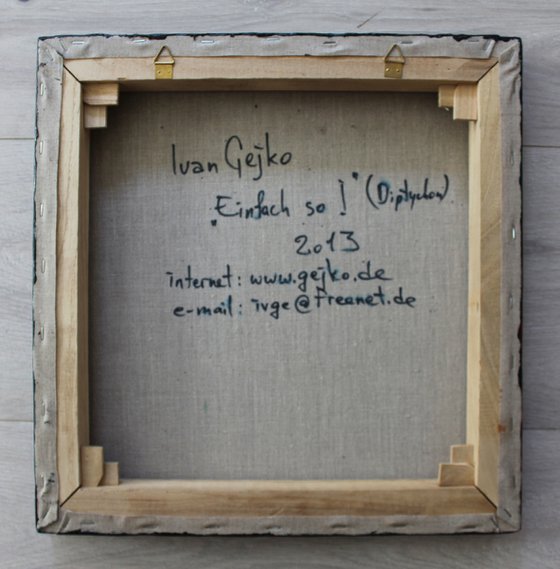 Ivan Gejko
"Einfach so!" (Diptychon)
2013
internet: www.gejko.de
e-mail: ivge@freenet.de